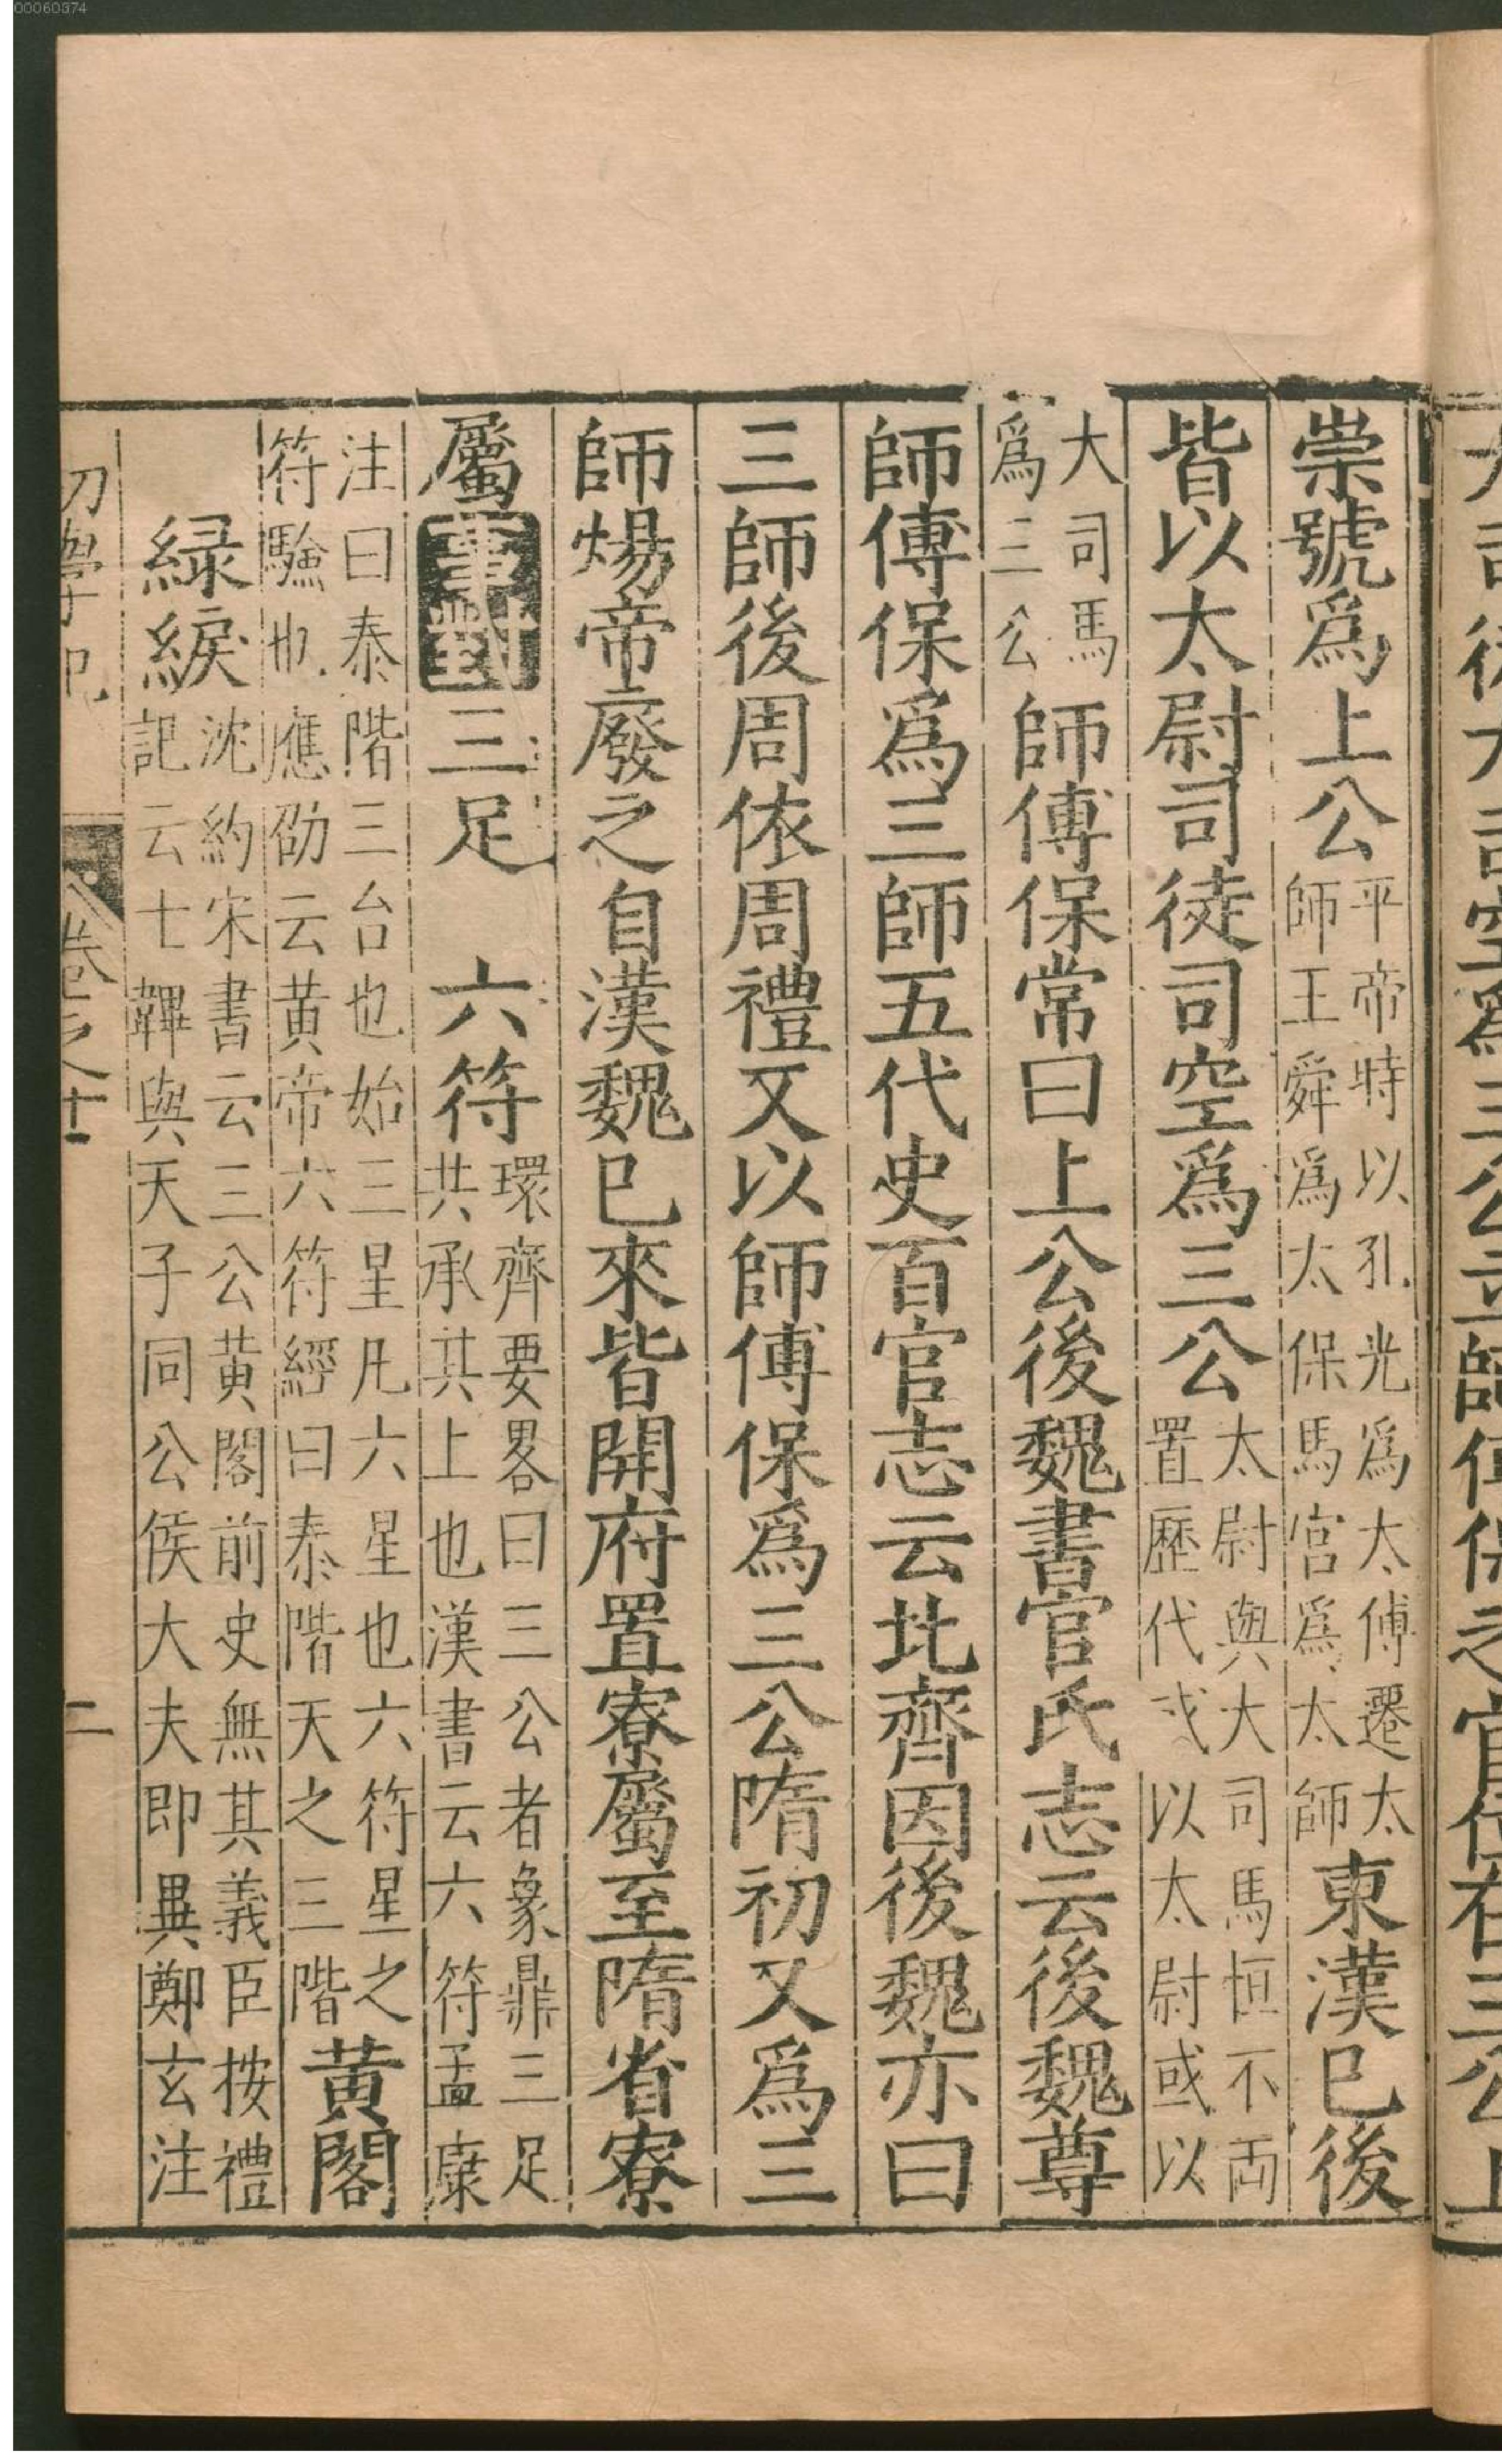 00060374
大司徒大司空爲三公立師傅保之官位在三公上
崇號爲上公
平帝時以孔光爲太傅遷太
師王舜爲太保馬宮爲太師
東漢已後
皆以太尉司徒司空爲三公
太尉與大司馬恒不両
置歷代或以太尉或以
大司馬
爲三公
師傅保常曰上公後魏書官氏志云後魏尊
師傅保爲三師五代史百官志云北齊因後魏亦曰
三師後周依周禮又以師傅保爲三公隋初又爲三
師煬帝廢之自漢魏已來皆開府置寮屬至隋省寮
屬 事對 三足 六符
環齊要畧曰三公者象鼎三足
共承其上也漢書云六符孟康
注曰泰階三台也始三星凡六星也六符星之
符驗也應劭云黄帝六符經曰泰階天之三階
黄閣
緑綟
沈約宋書云三公黄閣前史無其義臣按禮
記云士韠與天子同公侯大夫即異鄭玄注
初學記 卷之十一 二